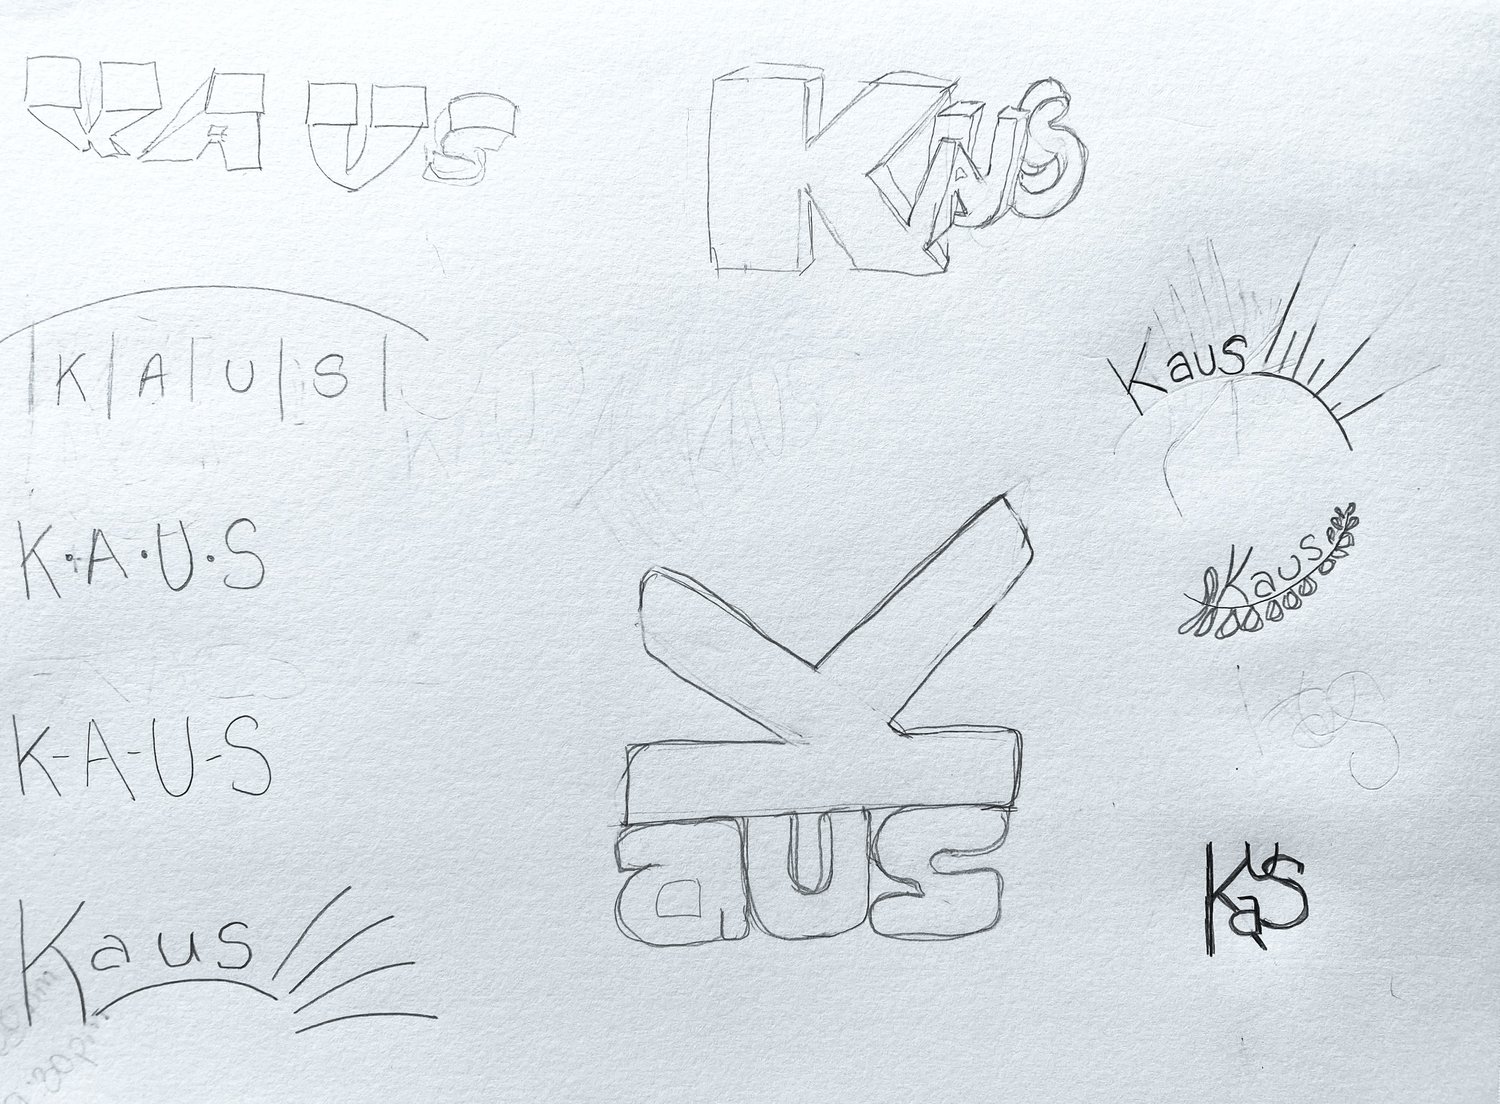 KAUS
Kaus
|K|A|U|S|
Kaus
K·A·U·S
Kaus
K-A-U-S
Kaus
Kaus
Kaus